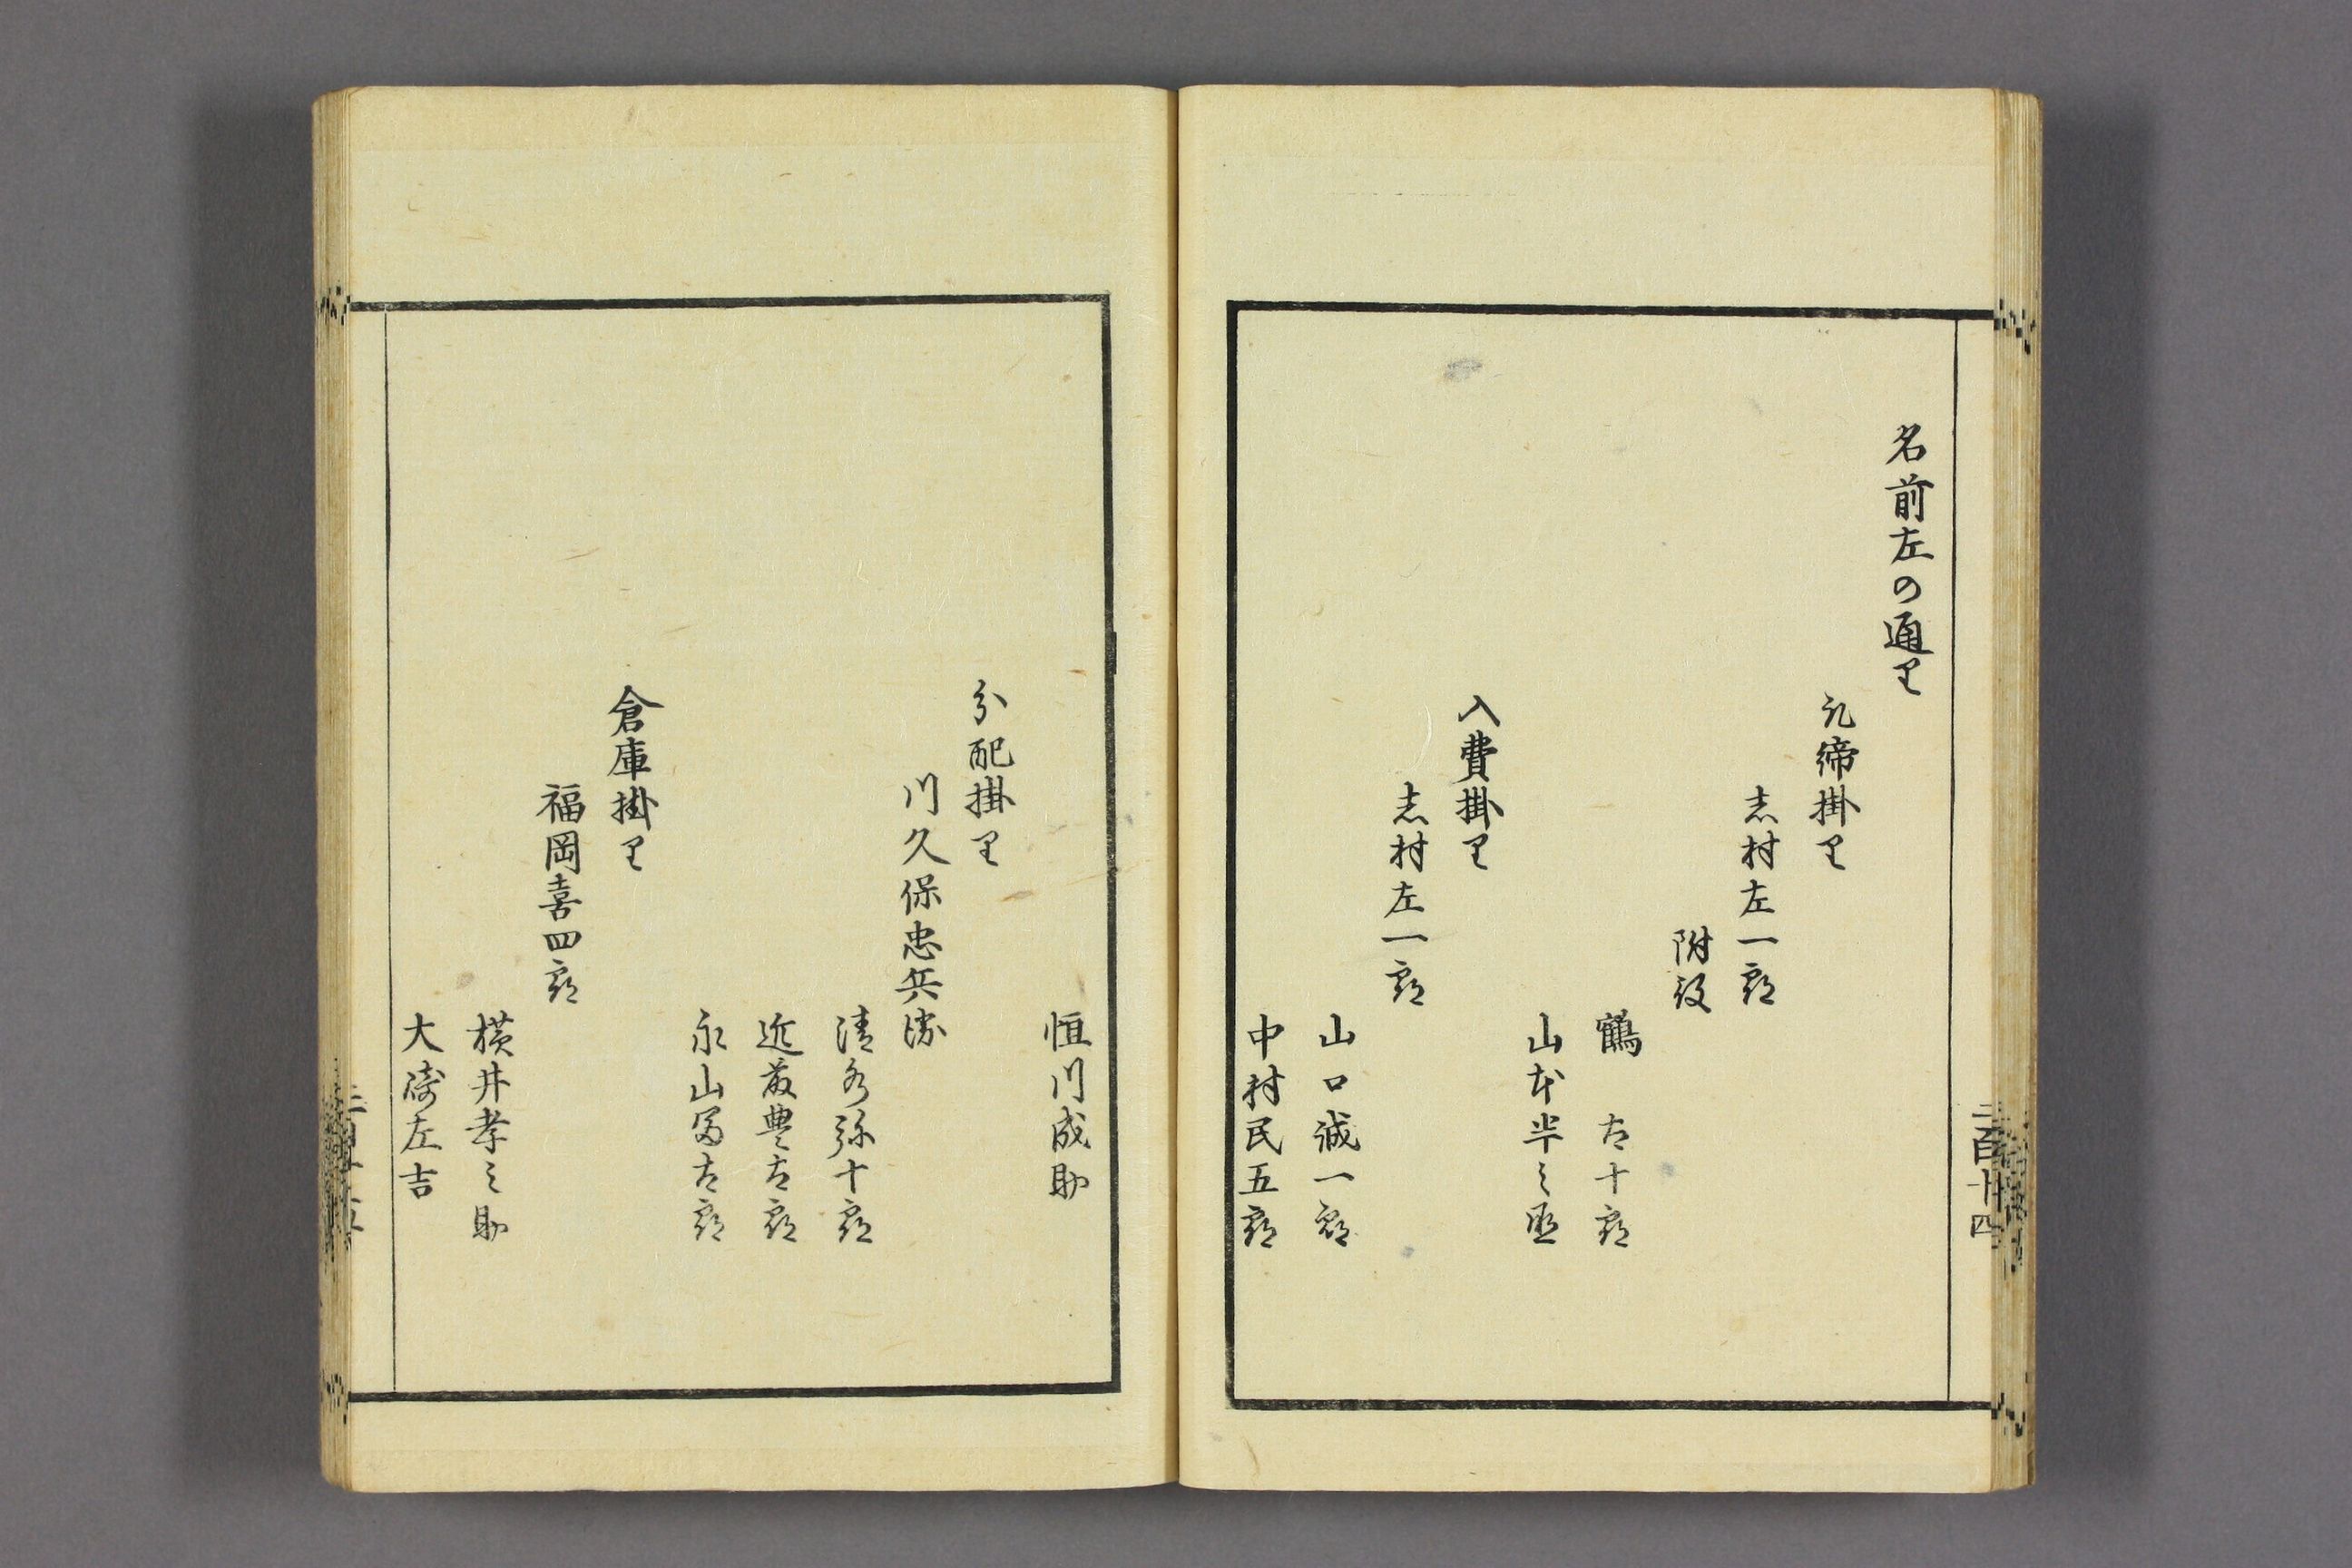 名前左の通り
元締掛り
志村左一郎
附役
鶴 太十郎
山本半之丞
入費掛り
志村左一郎
山口誠一郎
中村民五郎
恒川成助
分配掛り
川久保忠兵衛
清水弥十郎
近藤豊太郎
永山冨太郎
倉庫掛り
福岡喜四郎
横井孝之助
大崎左吉